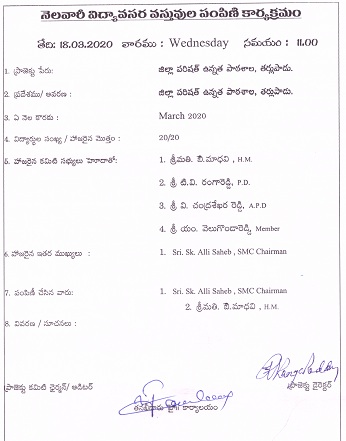 నెలవారీ విద్యావసర వస్తువుల పంపిణి కార్యక్రమం
తేది: 18.03.2020 వారము : Wednesday సమయం : 11.00
1. ప్రాజెక్టు పేరు: జిల్లా పరిషత్ ఉన్నత పాఠశాల, తర్లుపాడు.
2. ప్రదేశము/ ఆవరణ : జిల్లా పరిషత్ ఉన్నత పాఠశాల, తర్లుపాడు.
3. ఏ నెల కొరకు : March 2020
4. విద్యార్థుల సంఖ్య / హాజరైన మొత్తం : 20/20
5. హాజరైన కమిటి సభ్యులు హెూదాతో: 1. శ్రీమతి. బి.మాధవి , H.M.
2. శ్రీ టి.వి. రంగారెడ్డి, P.D.
3. శ్రీ వి. చంద్రశేఖర రెడ్డి, A.P.D
4. శ్రీ యం. వెలుగొండారెడ్డి, Member
6. హాజరైన ఇతర ముఖ్యులు : 1. Sri. Sk. Alli Saheb , SMC Chairman
7. పంపిణీ చేసిన వారు: 1. Sri. Sk. Alli Saheb , SMC Chairman
2. శ్రీమతి. బి.మాధవి , H.M.
8. వివరణ / సూచనలు :
ప్రాజెక్టు కమిటి ఛైర్మన్/ ఆడిటర్ ప్రాజెక్టు డైరెక్టర్
కార్యాలయం